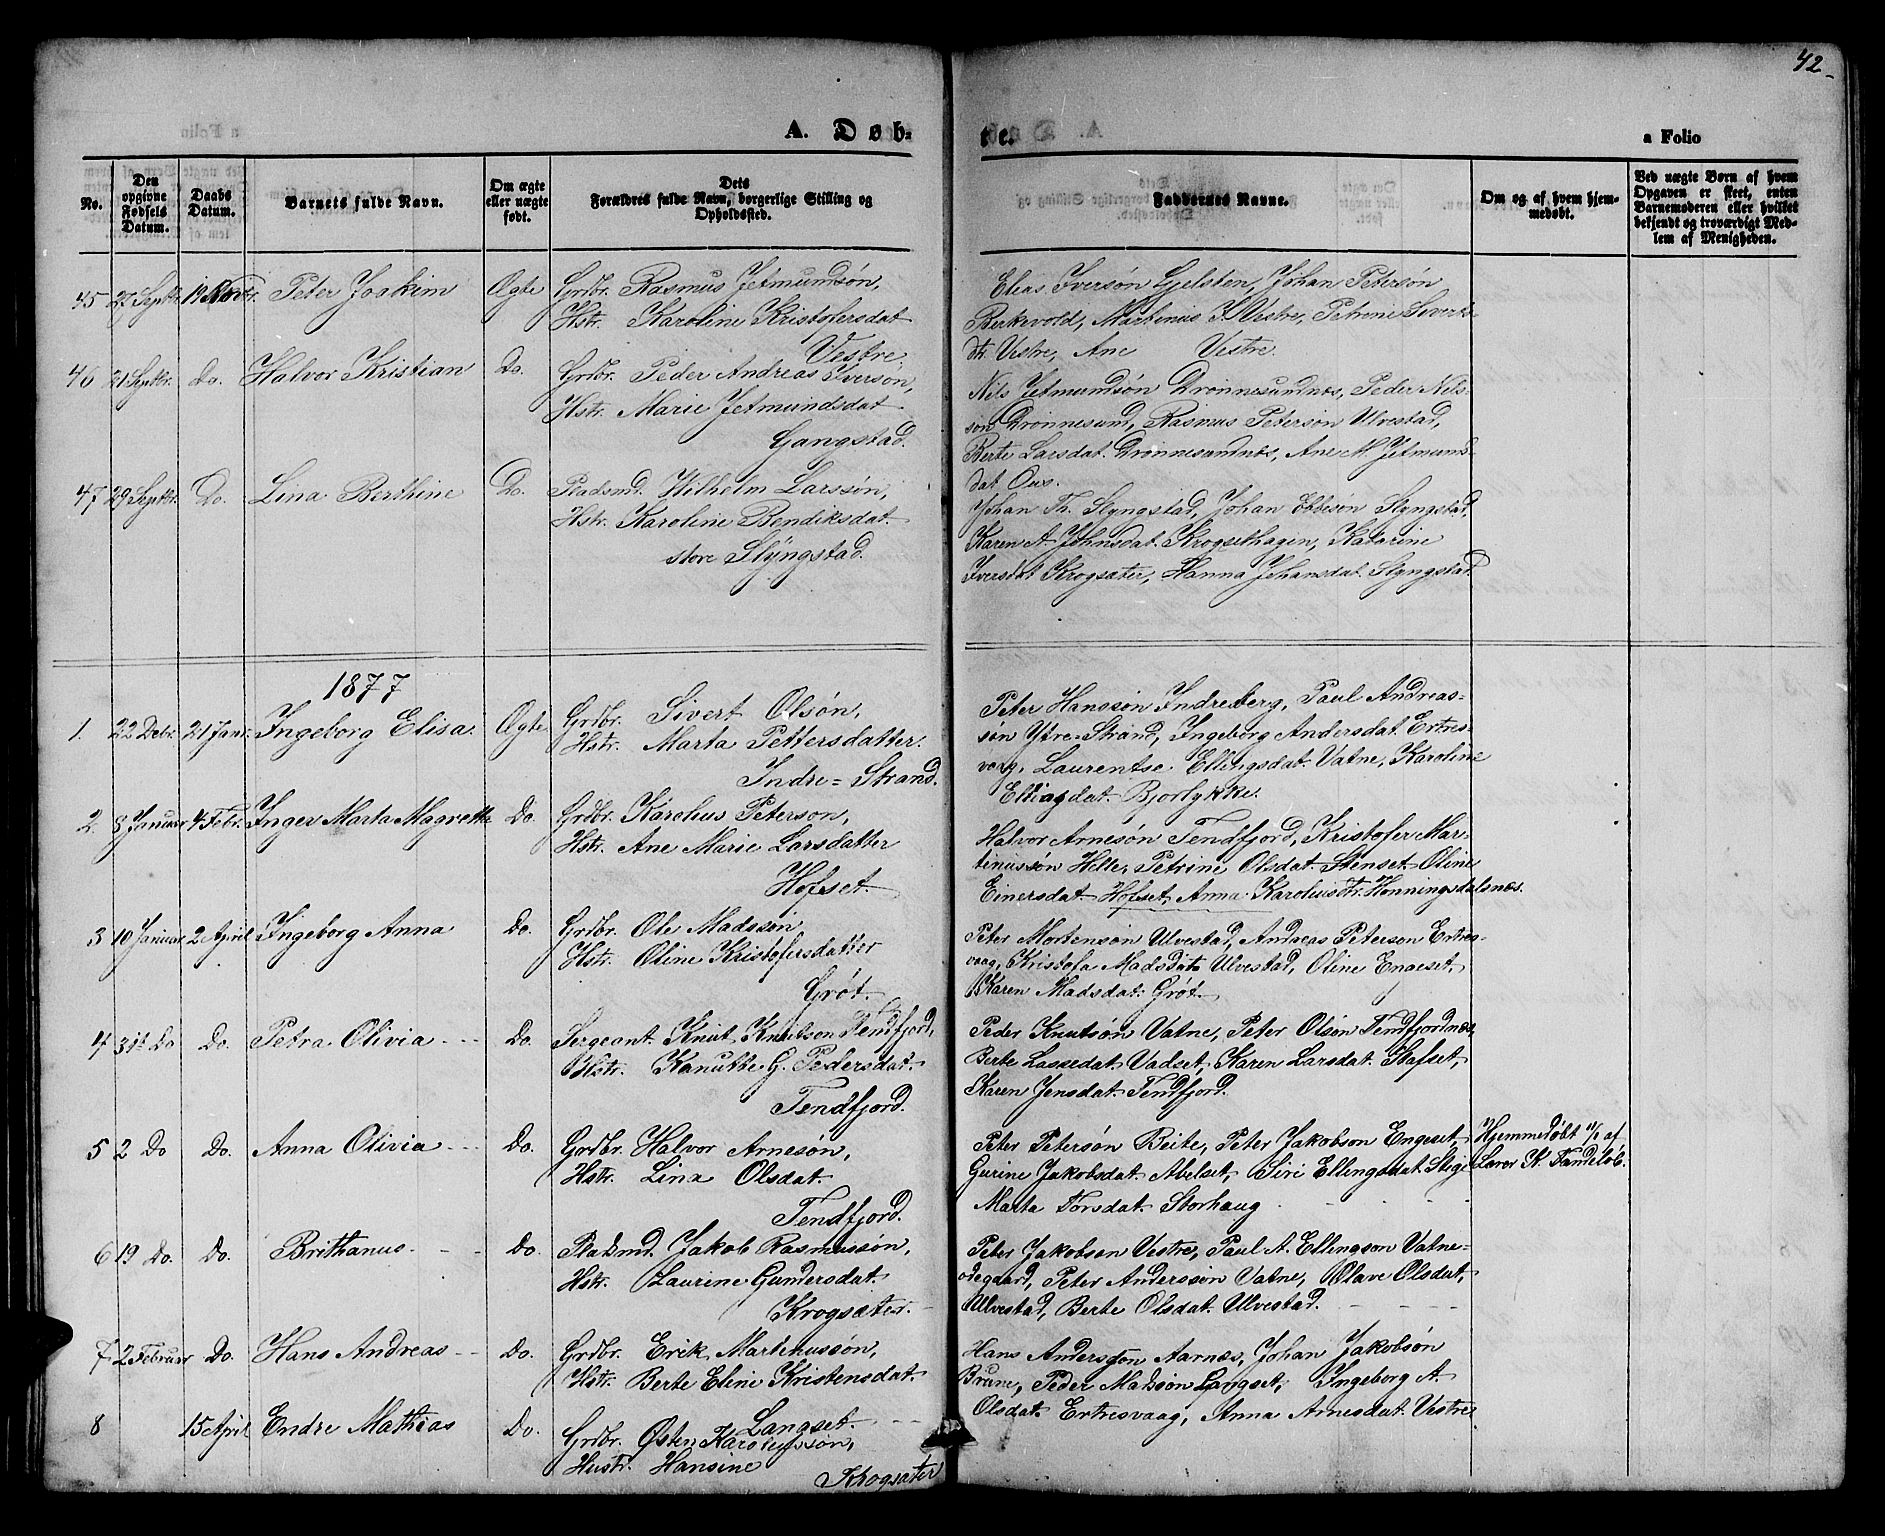 42
A. Døb-
No.
Den opgivne Fødsels Datum.
Daabs Datum.
Barnets fulde Navn.
Om ægte eller uægte født.
Dets
Forældres fulde Navn, borgerlige Stilling og
Opholdssted.
45 27 Septbr. 19 Novbr. Peter Joakim Ægte Grdbr. Rasmus Jetmundsøn,
Hstr. Karoline Kristofersdat
Vestre.
46 21 Septbr. Do. Halvor Kristian Do. Grdbr. Peder Andreas Iversøn,
Hstr. Marie Jetmundsdat
Gangstad.
47 29 Septbr. Do. Lina Berthine Do. Pladsmd. Wilhelm Larssøn,
Hstr. Karoline Bendiksdat.
store Slyngstad.
1877
1. 22 Debr. 21 Janr. Ingeborg Elisa. Ægte Grdbr. Sivert Olsøn,
Hstr. Marta Pettersdatter.
Indre-Strand.
2. 8 Januar 4 Febr. Inger Marta Magrethe Do. Grdbr. Karolius Peterson,
Hstr. Ane Marie Larsdatter
Hofset.
3 10 Januar 2 April Ingeborg Anna Do. Grdbr. Ole Madssøn
Hstr. Oline Kristofersdatter
Grøt.
4 31te Do Do. Petra Olivia Do. Sergeant Knut Knutson Tendfjord,
Hstr. Kanutte G. Pedersdat.
Tendfjord.
5 2 Do Do. Anna Olivia Do. Grdbr. Halvor Arnesøn,
Hstr. Lina Olsdat.
Tendfjord.
6 19 Do. Do. Brithanus Do. Pladsmd. Jakob Rasmussøn,
Hstr. Laurine Gundersdat.
Krogsæter.
7 2 Februar Do. Hans Andreas Do. Grdbr. Erik Martinussøn,
Hstr. Berte Eline Kristensdat.
Langset.
8 15 April Endre Mathias Do. Grdbr. Østen Karolussøn,
Hustr. Hansine
Krogsæter
te.
a Folio
Faddernes Navne.
Om og af hvem hjem-
medøbt.
Ved uægte Børn af hvem
Opgaven er skeet, enten
Barnemoderen eller hvilket
bekjendt og troværdigt Med-
lem af Menigheden.
Elias Iversøn Gjelsten, Johan Petersøn
Berkvold, Martinus I. Vestre, Petrine Siverts-
dt. Vestre, Ane Vestre.
Nils Jetmundsøn Drønnesundnæs, Peder Nils-
søn Drønnesund, Rasmus Petersøn Ulvestad,
Berte Larsdat. Drønnesundnæs, Ane M Jetmund-
dat Ous.
Johan Th. Slyngstad, Johan Ebbesøn Slyngstad,
Karen A Johnsdat. Krogsethagen, Katarine
Iversdat Krogsæter, Hanna Johansdat. Slyngstad.
Peter Hanssøn Indreberg, Paul Andreas-
søn Ytre-Strand, Ingeborg Andersdat. Ertres-
vaag, Laurentse Ellingsdat. Vatne, Karoline
Ellingdat. Bjorlykke.
Halvor Arnesøn Tendfjord, Kristofer Mar-
tinussøn Helle, Petrine Olsdat. Stenset Oline
Einersdat. Hofset, Anna Karoliusdtr. Honningsdalsnæs.
Peter Mortensøn Ulvestad, Andreas Peterson Ertres-
vaag, Kristofa Madsdat. Ulvestad, Oline Engeset,
Karen Madsdat. Grøt.
Peder Knutsøn Vatne, Peter Olsøn Tendfjordnæs,
Berte Lassedat. Vadset, Karen Larsdat.
Karen Jensdat. Tendfjord.
Peter Petersøn Beite, Peter Jakobson Engeset,
Gurine Jakobsdat. Abelset, Siri Ellingsdat.
Marta Torsdat. Storhaug
Hjemmedøbt 11/1 af
Peter Jakobson Vestre, Paul A. Ellingson Vatne-
ødegaard, Peter Anderssøn Vatne, Olave Olsdat.
Ulvestad, Berte Olsdat. Ulvestad.
Hans Anderssøn Aarnæs, Johan Jakobsøn
Brune, Peder Madssøn Langset, Ingeborg A.
Olsdat. Ertresvaag, Anna Arnesdat. Vestre